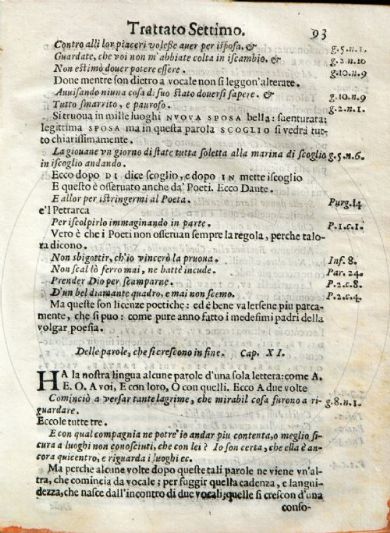 Trattato Settimo. 93
Contro alli lor piaceri volesse auer per isposa. g.5.n.1.
Guardate, che voi non m'abbiate colta in iscambio. &
Non estimò douer potere essere. g.10.n.9
Doue mentre son dietro a vocale non si leggon'alterate.
Auuisando niuna cosa di suo stato douersi sapere. & g.10.n.9
Tutto smarrito, e pauroso. g.2.n.1.
Si truoua in mille luoghi NVOVA SPOSA bella: suenturata;
legittima SPOSA ma in questa parola SCOGLIO si vedrà tut-
to chiarissimamente.
La giouane vn giorno di state tutta soletta alla marina di scoglio g.5.n.6.
in iscoglio andando.
Ecco dopo DI dice scoglio, e dopo IN mette iscoglio
E questo è osseruato anche da' Poeti. Ecco Dante.
E allor per istringermi al Poeta. Purg.14
e'l Petrarca
Per iscolpirlo immaginando in parte. P.1.c.1.
Vero è che i Poeti non osseruan sempre la regola, perche talo-
ra dicono.
Non sbigottir, ch'io vincerò la pruoua. Inf. 8.
Non scaldò ferro mai, ne battè incude. Par. 24.
Prender Dio per scamparne. P.2.c.8.
D'un bel diamante quadro, e mai non scemo. P.2.c.4.
Ma queste son licenze poetiche: ed è bene valersene piu parca-
mente, che si puo: come pure anno fatto i medesimi padri della
volgar poesia.
Delle parole, che si crescono in fine. Cap. XI.
HA la nostra lingua alcune parole d'una sola lettera: come A.
E. O. A voi, E con loro, O con quelli. Ecco A due volte
Cominciò a versar tante lagrime, che mirabil cosa furono a ri- g.8.n.1.
guardare.
Eccole tutte tre.
E con qual compagnia ne potre'io andar piu contenta, o meglio si-
cura a luoghi non conosciuti, che con lei? Io son certa, che ella è an-
cora quicentro, e riguarda i luoghi ec.
Ma perche alcune volte dopo queste tali parole ne viene vn'al-
tra, che comincia da vocale; per fuggir quella cadenza, e langui-
dezza, che nasce dall'incontro di due vocali; quelle si crescon d'una
conso-